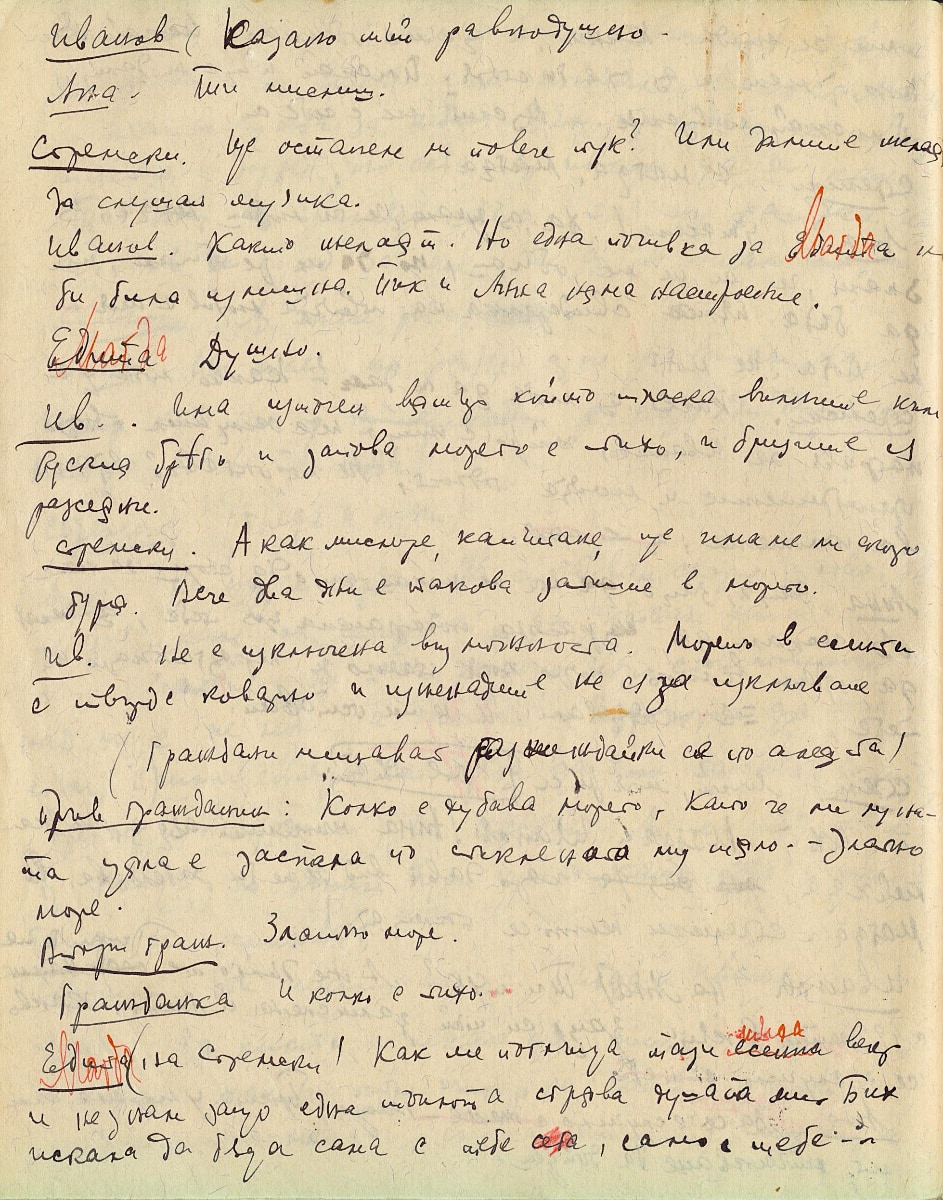 Иванов (Казано мий равнодушно -
Анна - Ти мислиш.
Стремски. Ще останем ли повече тук? Или Дание желае
да слушат музика.
Иванов. Както желаят. Но една почивка за Магда не
би била излишна. Пък и Анна няма настроение.
Магда Душно.
Ив. . Има източен вятър който тласка вълните към
Руския брегъ и затова морето е тихо, и бризите са
разседни.
Стремски. А как мислите, капитане, ще имаме ли скоро
буря. Вече два дни е такова затишие в морето.
Ив. Не е изключена възможността. Морето в есента
е твърде коварно и изненадите не са за изключване
(Граждани минават разхождайки се по алеята)
Първи гражданин: Колко е хубаво морето, като че ли луна-
та цяла е заспала по стъкленото му тяло. - Златно
море.
Втори граж. Златно море.
Гражданка И колко е тихо.
Магда (на Стремски) Как ме потиска тази вечер
и не зная защо една тъмнота страва душата ми. Бих
искала да бъда сама с тебе сега, само с тебе -